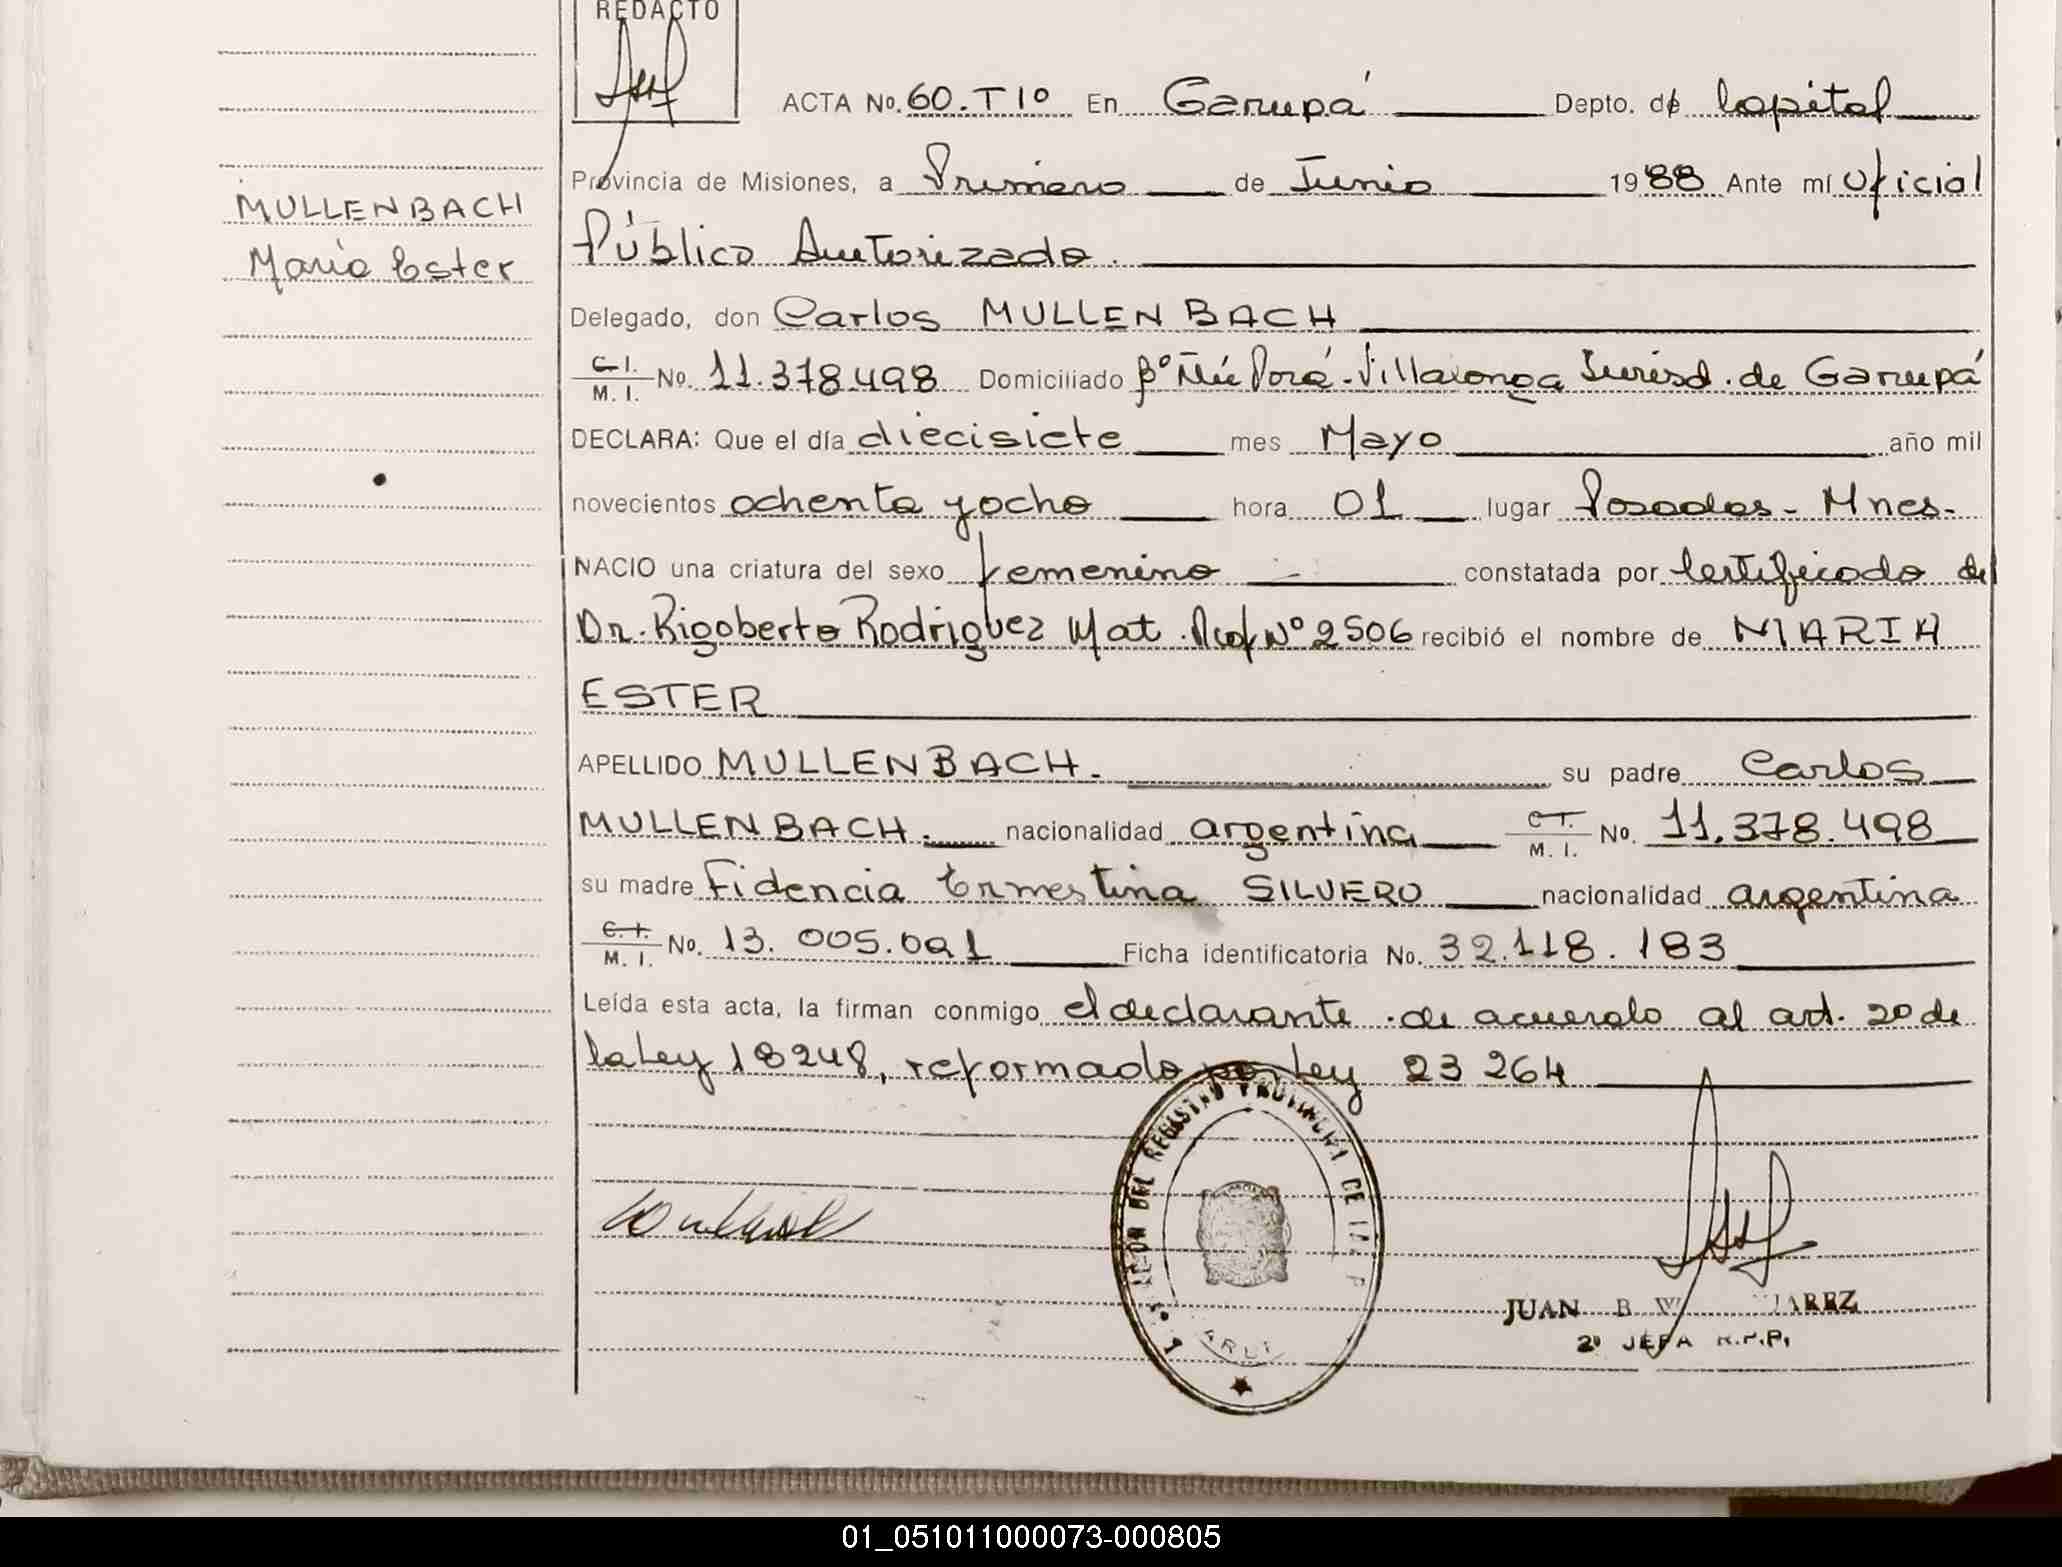 REDACTO
ACTA No. 60. T 1º En Garupá Depto. de Capital
Provincia de Misiones, a Primero de Junio 1988 Ante mí Oficial
MULLENBACH
María Ester
Público Autorizado.
Delegado, don Carlos MULLENBACH
C. I. M. I. No. 11.378.498 Domiciliado Bº Ñu Porá - Villalonga Jurisd. de Garupá
DECLARA: Que el día diecisiete mes Mayo año mil
novecientos ochenta y ocho hora 01 lugar Posadas - Mnes.
NACIO una criatura del sexo femenino constatada por Certificado del
Dr. Rigoberto Rodriguez Mat. Prof Nº 2506 recibió el nombre de MARIA
ESTER
APELLIDO MULLENBACH. su padre Carlos
MULLENBACH. nacionalidad argentina C. I. M. I. No. 11.378.498
su madre Fidencia Ermestina SILVERO nacionalidad argentina
C. I. M. I. No. 13.005.091 Ficha identificatoria No. 32.118.183
Leída esta acta, la firman conmigo el declarante . de acuerdo al art. 20 de
la Ley 18248, reformado por Ley 23 264
DEL REGISTRO PROVINCIAL DE
JUAN B.
2º JEFA R.P.P.
01_051011000073-000805